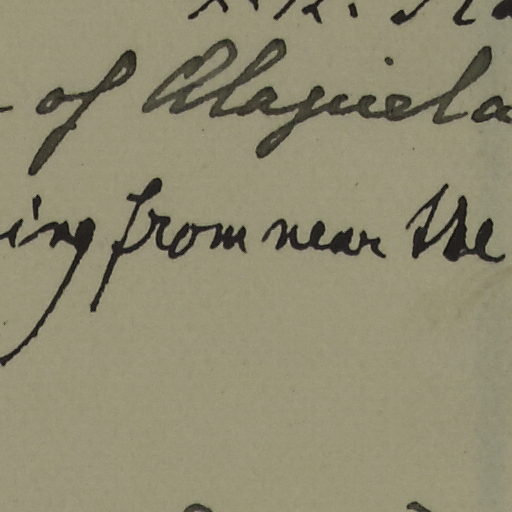 of Alaguela
ing from near the